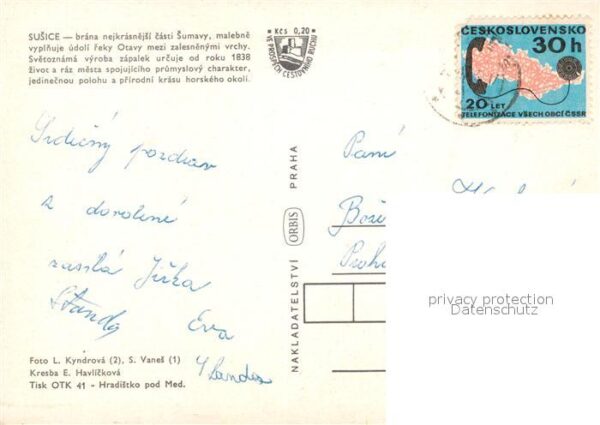 SUŠICE — brána nejkrásnější části Šumavy, malebně
vyplňuje údolí řeky Otavy mezi zalesněnými vrchy.
Světoznámá výroba zápalek určuje od roku 1838
život a ráz města spojujícího průmyslový charakter,
jedinečnou polohu a přírodní krásu horského okolí.
Kčs 0,20
VE PROSPĚCH CESTOVNÍHO RUCHU
ČESKOSLOVENSKO
30 h
20 LET
TELEFONIZACE VŠECH OBCÍ ČSSR
Srdečný pozdrav
z dovolené
zasílá Jiřka
Standa
Eva
Paní
NAKLADATELSTVÍ ORBIS PRAHA
privacy protection
Datenschutz
Foto L. Kyndrová (2), S. Vaneš (1)
Kresba E. Havlíčková
Tisk OTK 41 - Hradištko pod Med.